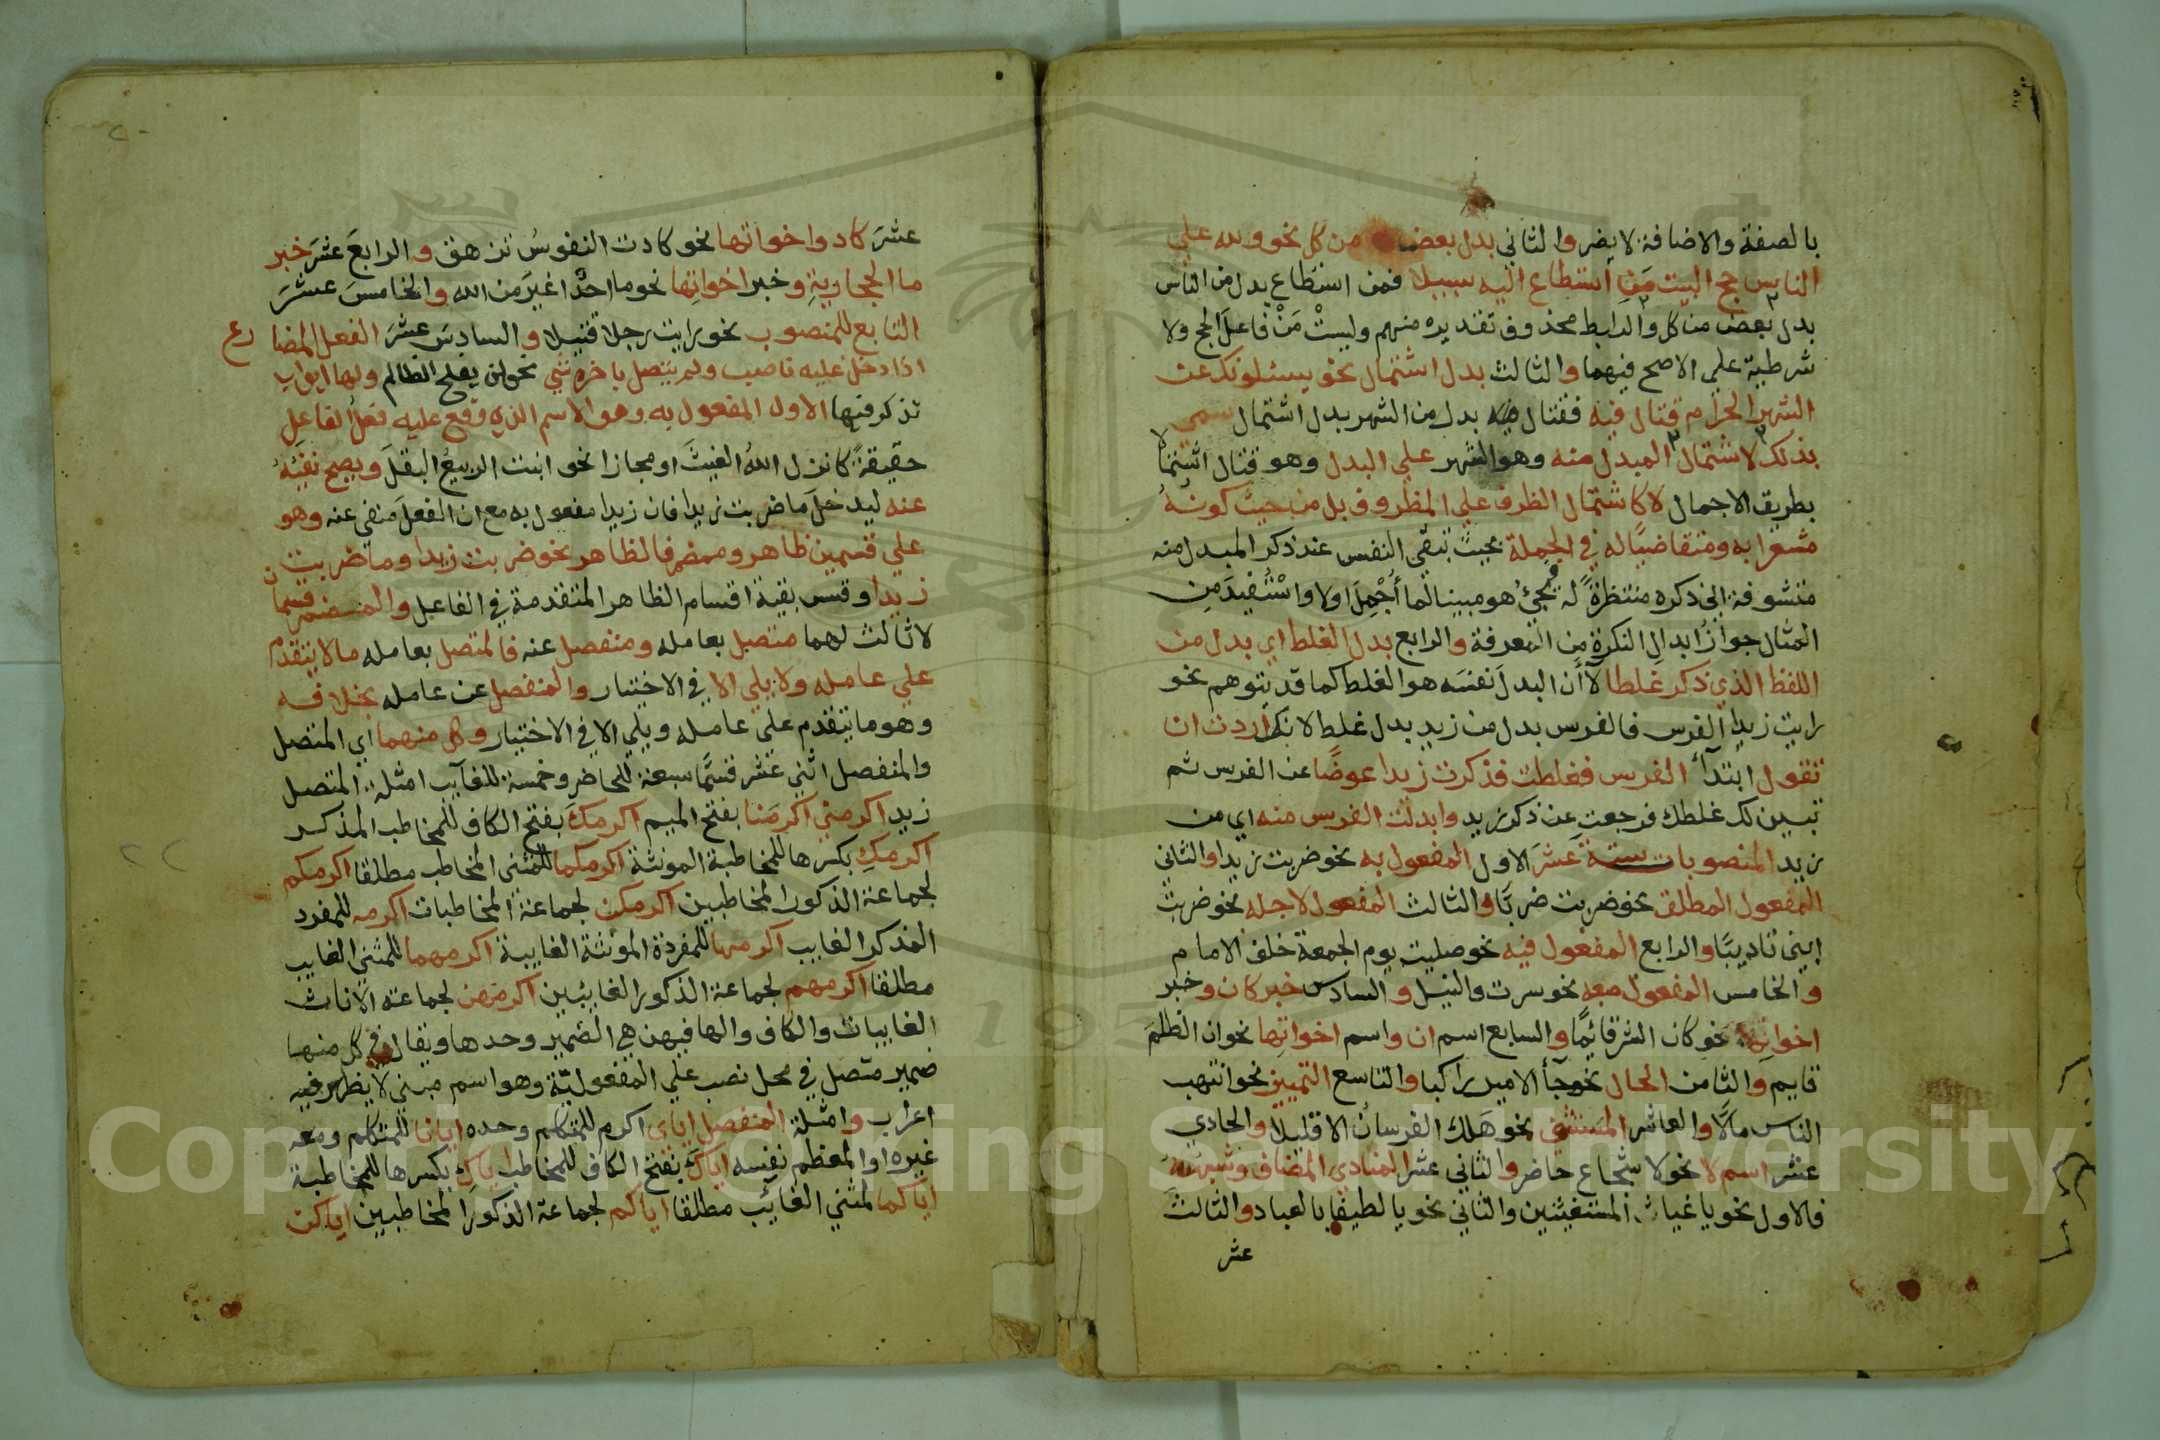 بالصفة والاضافة لا يضر والثاني بدل بعض من كل نحو ولله علي
الناس حج البيت من استطاع اليه سبيلا فمن استطاع بدل من الناس
بدل بعض من كل والرابط محذوف تقديره منهم وليستْ مَنْ فاعلَ الحج ولا
شرطية علي الاصح فيهما والثالث بدل اشتمال نحو يسئلونك عن
الشهر الحرام قتال فيه فقتال بدل من الشهر بدل اشتمال سمي
بذلك لاشتمال المبدل منه وهو الشهر علي البدل وهو قتال اشتمالا
بطريق الاجمال لا كاشتمال الظرف علي المظروف بل من حيث كونهُ
مشعرا به ومتقاضيًا له في الجملة بحيث تبقي النفس عند ذكر المبدل منه
متشوفة الي ذكره منتظرةً له فيجيُ هو مبينا لما أُجْمِلَ اولا واسْتُفيدَ مِن
المثال جوازُ ابدالِ النكرة من المعرفة والرابع بدل الغلط اي بدل من
اللفظ الذي ذكر غلطا لا أن البدلَ نفسَه هو الغلط كما قد يتوهم نحو
رايت زيدا الفرس فالفرس بدل من زيد بدل غلط لانك اردت ان
تقول ابتدآءً الفرس فغلطت فذكرت زيدا عوضًا عن الفرس ثم
تبين لك غلطك فرجعت عن ذكر زيد وابدلت الفرس منه اي من
زيد المنصوبات ستة عشرَ الاول المفعول به نحو ضربت زيدا والثاني
المفعول المطلق نحو ضربت ضربًا والثالث المفعول لاجله نحو ضربت
ابني تاديبًا والرابع المفعول فيه نحو صليت يوم الجمعة خلف الامام
والخامس المفعول معه نحو سرت والنيل والسادس خبر كان وخبر
اخواتها نحو كان الشر قائمًا والسابع اسم ان واسم اخواتها نحو ان الظلمَ
قايم والثامن الحال نحو جآء الامير راكبا والتاسع التمييز نحو انتهب
الناس مالًا والعاشر المستثني نحو هَلك الفرسانُ الا قليلًا والحادي
عشر اسم لا نحو لا شجاع حاضر والثاني عشر المنادي المضاف وشبهه
فالاول نحو يا غياث المستغيثين والثاني نحو يا لطيفا بالعباد والثالث
عشر
عشرَ كاد واخواتها نحو كادت النفوسُ تزهق والرابعَ عشرَ خبر
ما الحجازيةِ وخبر اخواتِها نحو ما احدٌ اغيرَ من الله والخامسَ عشرَ
التابع للمنصوب نحو رايت رجلا قتيلا والسادسَ عشرَ الفعل المضارع
اذا دخل عليه ناصب ولم يتصل باخره شي نحو لن يفلح الظالم ولها ابواب
تذكر فيها الاول المفعول به وهو الاسم الذي وقع عليه فعلُ الفاعل
حقيقةً كانزل اللهُ الغيثَ او مجازا نحو انبت الربيعُ البقلَ ويصح نفيُهُ
عنه ليدخلَ ما ضربت زيدا فان زيدا مفعول به مع ان الفعلَ منفي عنه وهو
علي قسمين ظاهر ومضمر فالظاهر نحو ضربت زيدا وما ضربت
زيدا وقس بقية اقسام الظاهر المتقدمة في الفاعل والمضمر قسمان
لا ثالث لهما متصل بعامله ومنفصل عنه فالمتصل بعامله ما لا يتقدم
علي عامله ولا يلي الا في الاختيار والمنفصل عن عامله بخلافه
وهو ما يتقدم علي عامله ويلي الا في الاختيار وكل منهما اي المتصل
والمنفصل اثني عشر قسمًا سبعة للحاضر وخمسة للغآيب امثلة المتصل
زيد اكرمني اكرمَنا بفتح الميم اكرمكَ بفتح الكاف للمخاطب المذكر
اكرمكِ بكسرها للمخاطبة المونثة اكرمكما للمثني المخاطب مطلقا اكرمكم
لجماعة الذكور المخاطبين اكرمكن لجماعة المخاطبات اكرمه للمفرد
المذكر الغايب اكرمها للمفردة المؤنثة الغايبة اكرمهما للمثني الغايب
مطلقا اكرمهم لجماعة الذكور الغايبين اكرمهن لجماعة الاناث
الغايبات والكاف والها فيهن هي الضمير وحدها ويقال في كل منها
ضمير متصل في محل نصب علي المفعوليّة وهو اسم مبني لا يظهر فيه
اعراب وامثلة المنفصل اياى اكرم للمتكلم وحده ايانا للمتكلم ومعه
غيره او المعظم نفسه اياكَ بفتح الكاف للمخاطب اياكِ بكسرها للمخاطبة
اياكما لمثني الغائب مطلقا اياكم لجماعة الذكور المخاطبين اياكن
Copyright © King Saud University